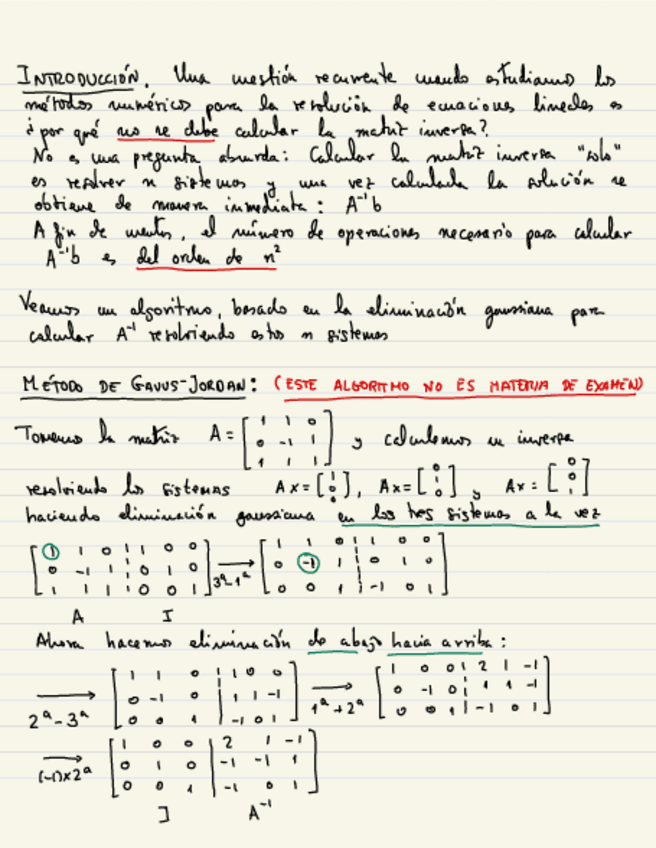 INTRODUCCIÓN. Una cuestión recurrente cuando estudiamos los
métodos numéricos para la resolución de ecuaciones lineales es
¿por qué no se debe calcular la matriz inversa?
No es una pregunta absurda: Calcular la matriz inversa "solo"
es resolver n sistemas y una vez calculada la solución se
obtiene de manera inmediata: A⁻¹b
A fin de cuentas, el número de operaciones necesario para calcular
A⁻¹b es del orden de n²
Veamos un algoritmo, basado en la eliminación gaussiana para
calcular A⁻¹ resolviendo estos n sistemas
MÉTODO DE GAUUS-JORDAN: (ESTE ALGORITMO NO ES MATERIA DE EXAMEN)
Tomemos la matriz A = [1 1 0; 0 -1 1; 1 1 1] y calculemos su inversa
resolviendo los sistemas Ax = [1; 0; 0], Ax = [0; 1; 0] y Ax = [0; 0; 1]
haciendo eliminación gaussiana en los tres sistemas a la vez
[1 1 0 | 1 0 0; 0 -1 1 | 0 1 0; 1 1 1 | 0 0 1] → 3ª-1ª [1 1 0 | 1 0 0; 0 -1 1 | 0 1 0; 0 0 1 | -1 0 1]
A I
Ahora hacemos eliminación de abajo hacia arriba:
→ 2ª-3ª [1 1 0 | 1 0 0; 0 -1 0 | 1 1 -1; 0 0 1 | -1 0 1] → 1ª+2ª [1 0 0 | 2 1 -1; 0 -1 0 | 1 1 -1; 0 0 1 | -1 0 1]
→ (-1)×2ª [1 0 0 | 2 1 -1; 0 1 0 | -1 -1 1; 0 0 1 | -1 0 1]
I A⁻¹